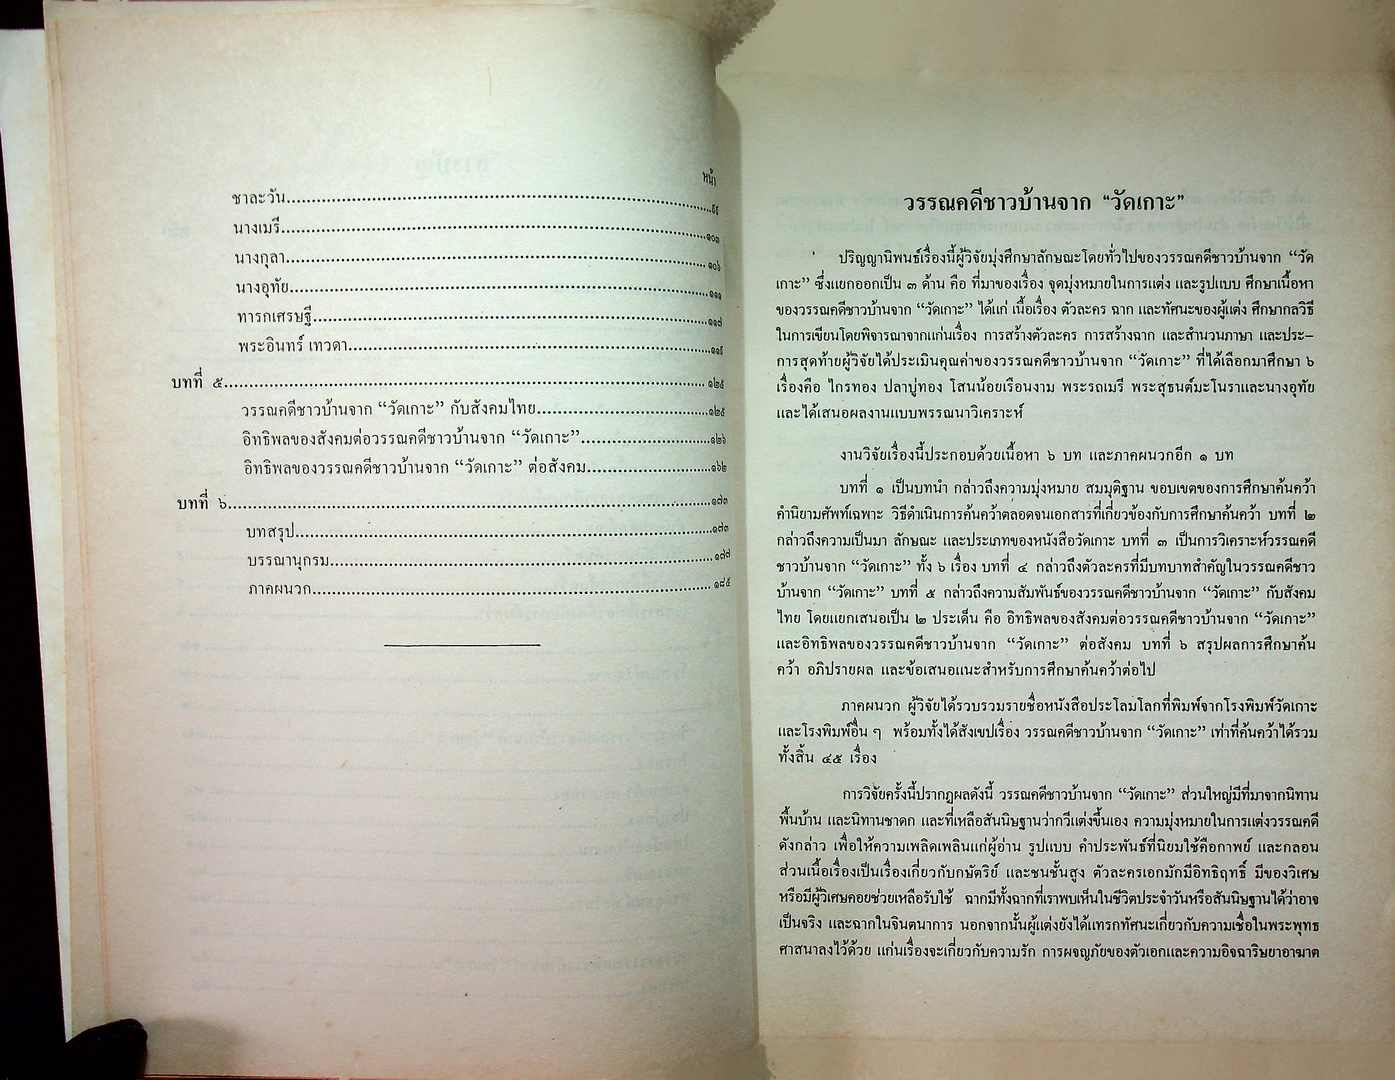 หน้า
ชาละวัน...๙๙
นางเมรี...๑๐๓
นางกุลา...๑๐๖
นางอุทัย...๑๑๑
ทารกเศรษฐี...๑๑๗
พระอินทร์ เทวดา...๑๑๙
บทที่ ๕...๑๒๕
วรรณคดีชาวบ้านจาก “วัดเกาะ” กับสังคมไทย...๑๒๕
อิทธิพลของสังคมต่อวรรณคดีชาวบ้านจาก “วัดเกาะ”...๑๒๖
อิทธิพลของวรรณคดีชาวบ้านจาก “วัดเกาะ” ต่อสังคม...๑๖๒
บทที่ ๖...๑๗๓
บทสรุป...๑๗๓
บรรณานุกรม...๑๗๗
ภาคผนวก...๑๘๕
วรรณคดีชาวบ้านจาก “วัดเกาะ”
ปริญญานิพนธ์เรื่องนี้ผู้วิจัยมุ่งศึกษาลักษณะโดยทั่วไปของวรรณคดีชาวบ้านจาก “วัด
เกาะ” ซึ่งแยกออกเป็น ๓ ด้าน คือ ที่มาของเรื่อง จุดมุ่งหมายในการแต่ง และรูปแบบ ศึกษาเนื้อหา
ของวรรณคดีชาวบ้านจาก “วัดเกาะ” ได้แก่ เนื้อเรื่อง ตัวละคร ฉาก และทัศนะของผู้แต่ง ศึกษากลวิธี
ในการเขียนโดยพิจารณาจากแก่นเรื่อง การสร้างตัวละคร การสร้างฉาก และสำนวนภาษา และประ–
การสุดท้ายผู้วิจัยได้ประเมินคุณค่าของวรรณคดีชาวบ้านจาก “วัดเกาะ” ที่ได้เลือกมาศึกษา ๖
เรื่องคือ ไกรทอง ปลาบู่ทอง โสนน้อยเรือนงาม พระรถเมรี พระสุธนต์มะโนราและนางอุทัย
และได้เสนอผลงานแบบพรรณนาวิเคราะห์
งานวิจัยเรื่องนี้ประกอบด้วยเนื้อหา ๖ บท และภาคผนวกอีก ๑ บท
บทที่ ๑ เป็นบทนำ กล่าวถึงความมุ่งหมาย สมมุติฐาน ขอบเขตของการศึกษาค้นคว้า
คำนิยามศัพท์เฉพาะ วิธีดำเนินการค้นคว้าตลอดจนเอกสารที่เกี่ยวข้องกับการศึกษาค้นคว้า บทที่ ๒
กล่าวถึงความเป็นมา ลักษณะ และประเภทของหนังสือวัดเกาะ บทที่ ๓ เป็นการวิเคราะห์วรรณคดี
ชาวบ้านจาก “วัดเกาะ” ทั้ง ๖ เรื่อง บทที่ ๔ กล่าวถึงตัวละครที่มีบทบาทสำคัญในวรรณคดีชาว
บ้านจาก “วัดเกาะ” บทที่ ๕ กล่าวถึงความสัมพันธ์ของวรรณคดีชาวบ้านจาก “วัดเกาะ” กับสังคม
ไทย โดยแยกเสนอเป็น ๒ ประเด็น คือ อิทธิพลของสังคมต่อวรรณคดีชาวบ้านจาก “วัดเกาะ”
และอิทธิพลของวรรณคดีชาวบ้านจาก “วัดเกาะ” ต่อสังคม บทที่ ๖ สรุปผลการศึกษาค้น
คว้า อภิปรายผล และข้อเสนอแนะสำหรับการศึกษาค้นคว้าต่อไป
ภาคผนวก ผู้วิจัยได้รวบรวมรายชื่อหนังสือประโลมโลกที่พิมพ์จากโรงพิมพ์วัดเกาะ
และโรงพิมพ์อื่น ๆ พร้อมทั้งได้สังเขปเรื่อง วรรณคดีชาวบ้านจาก “วัดเกาะ” เท่าที่ค้นคว้าได้รวม
ทั้งสิ้น ๔๕ เรื่อง
การวิจัยครั้งนี้ปรากฏผลดังนี้ วรรณคดีชาวบ้านจาก “วัดเกาะ” ส่วนใหญ่มีที่มาจากนิทาน
พื้นบ้าน และนิทานชาดก และที่เหลือสันนิษฐานว่ากวีแต่งขึ้นเอง ความมุ่งหมายในการแต่งวรรณคดี
ดังกล่าว เพื่อให้ความเพลิดเพลินแก่ผู้อ่าน รูปแบบ คำประพันธ์ที่นิยมใช้คือกาพย์ และกลอน
ส่วนเนื้อเรื่องเป็นเรื่องเกี่ยวกับกษัตริย์ และชนชั้นสูง ตัวละครเอกมักมีอิทธิฤทธิ์ มีของวิเศษ
หรือมีผู้วิเศษคอยช่วยเหลือรับใช้ ฉากมีทั้งฉากที่เราพบเห็นในชีวิตประจำวันหรือสันนิษฐานได้ว่าอาจ
เป็นจริง และฉากในจินตนาการ นอกจากนั้นผู้แต่งยังได้แทรกทัศนะเกี่ยวกับความเชื่อในพระพุทธ
ศาสนาลงไว้ด้วย แก่นเรื่องจะเกี่ยวกับความรัก การผจญภัยของตัวเอกและความอิจฉาริษยาอาฆาต